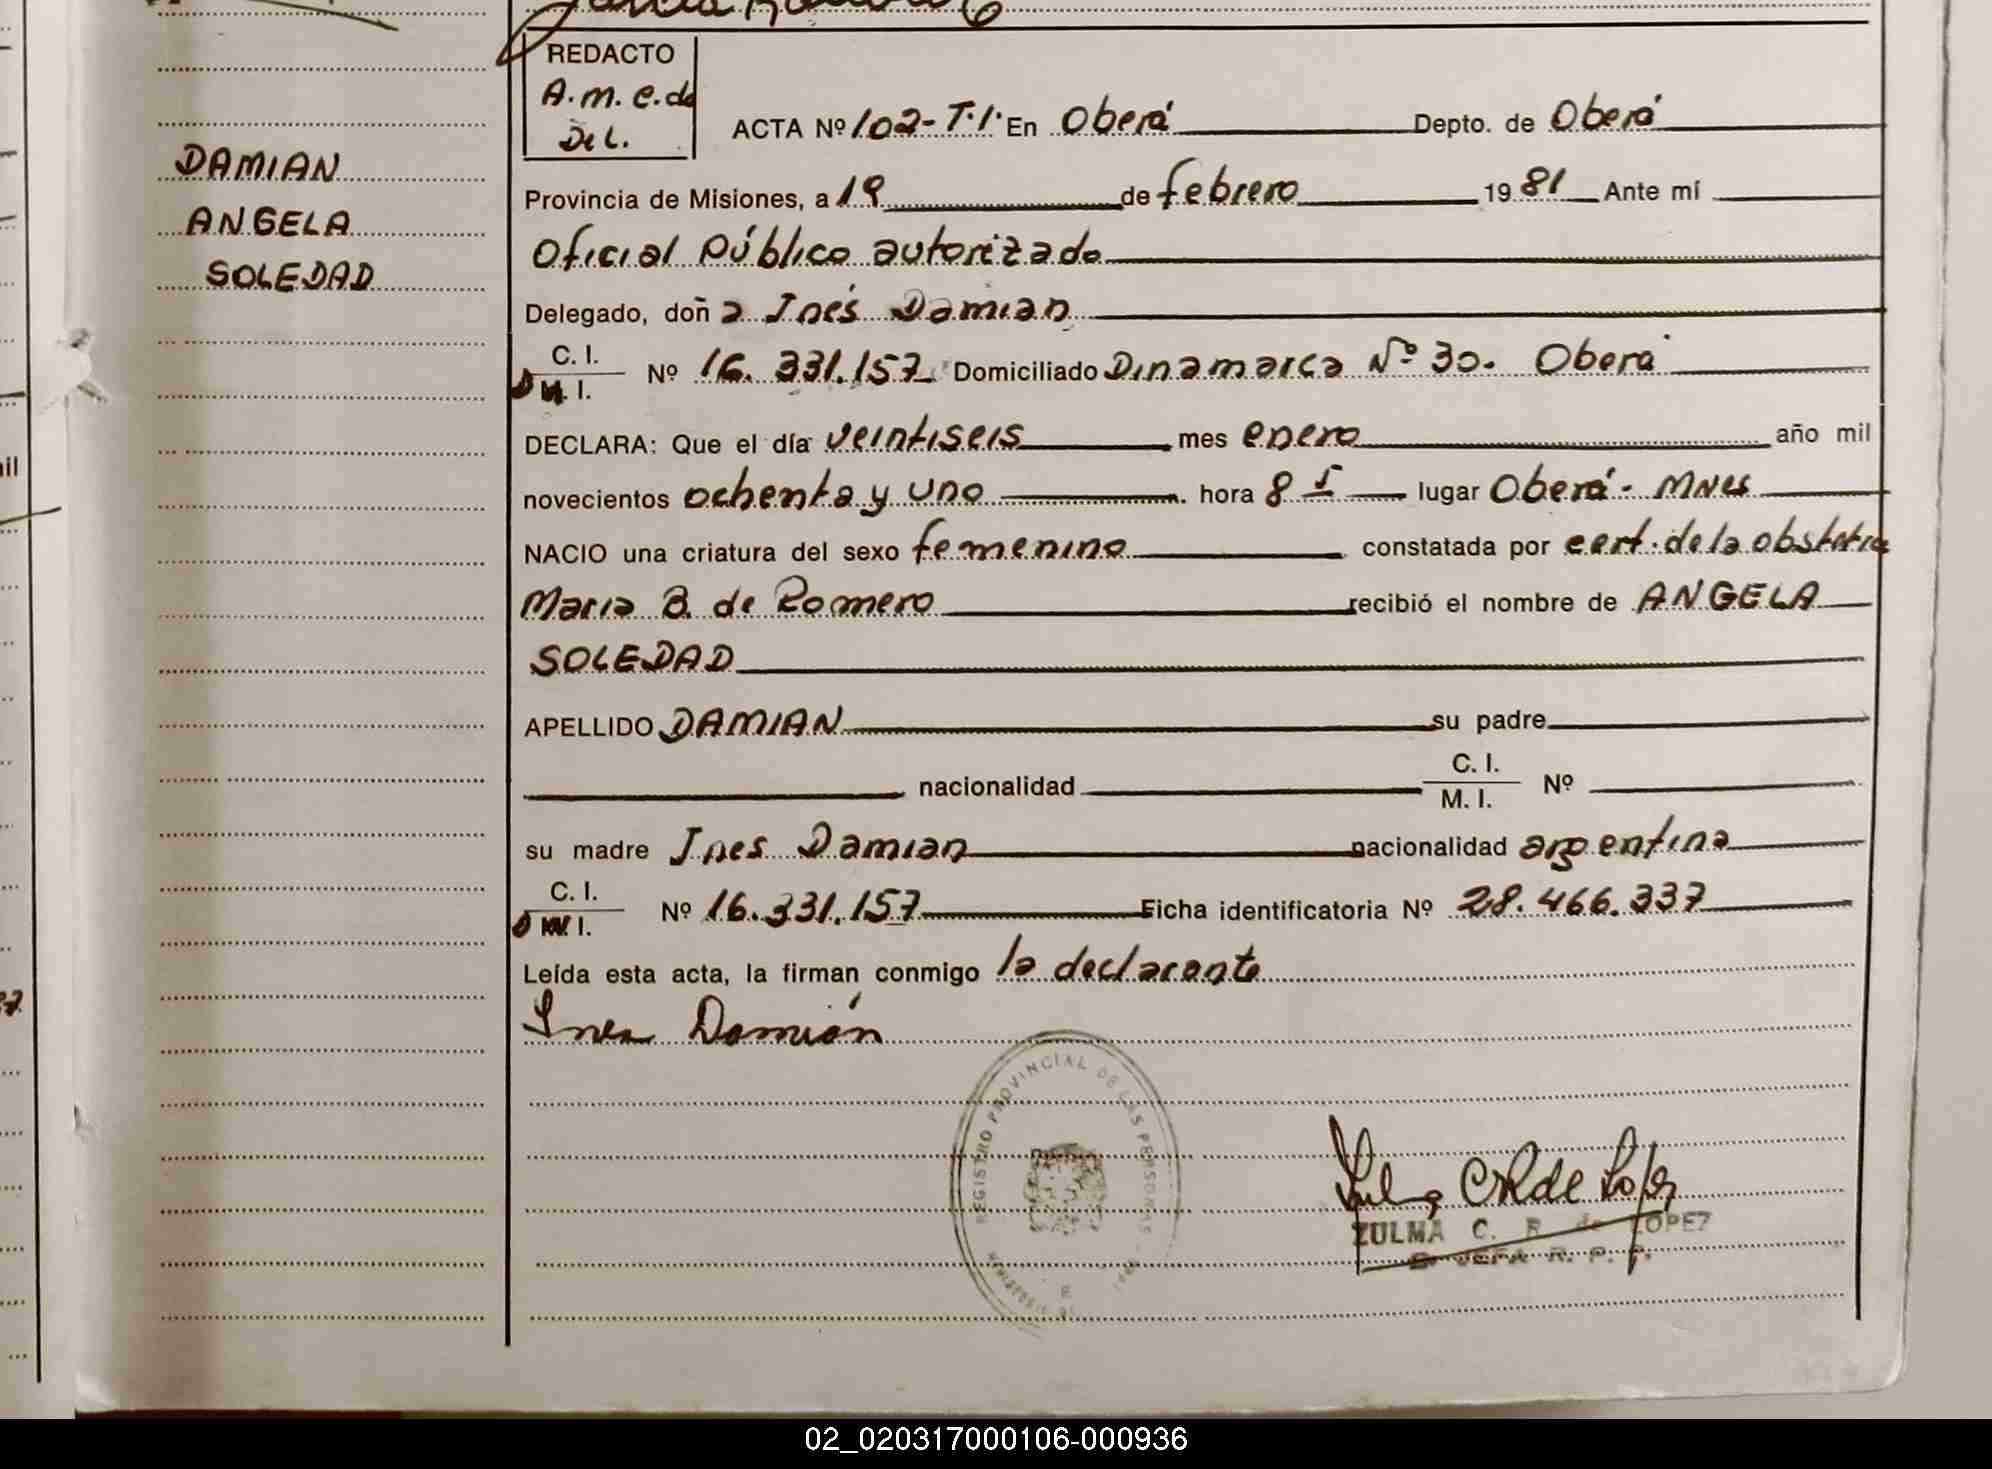 REDACTO
A.m.c.de
Del.
DAMIAN
ANGELA
SOLEDAD
ACTA Nº 102-T.I. En Oberá Depto. de Oberá
Provincia de Misiones, a 19 de febrero 1981 Ante mí
Oficial Público autorizado
Delegado, doña Inés Damian
C. I.
D M. I. Nº 16.331.157 Domiciliado Dinamarca Nº 30. Oberá
DECLARA: Que el día veintiseis mes enero año mil
novecientos ochenta y uno. hora 8 lugar Oberá - Mnes
NACIO una criatura del sexo femenino constatada por cert. de la obstetra
Maria B. de Romero recibió el nombre de ANGELA
SOLEDAD
APELLIDO DAMIAN su padre
nacionalidad C. I.
M. I. Nº
su madre Ines Damian nacionalidad argentina
C. I.
D M. I. Nº 16.331.157 Ficha identificatoria Nº 28.466.337
Leída esta acta, la firman conmigo la declarante
Ines Damián
REGISTRO PROVINCIAL DE LAS PERSONAS
Zulma C R de Lopez
ZULMA C. R. de LOPEZ
JEFA R. P. P.
02_020317000106-000936